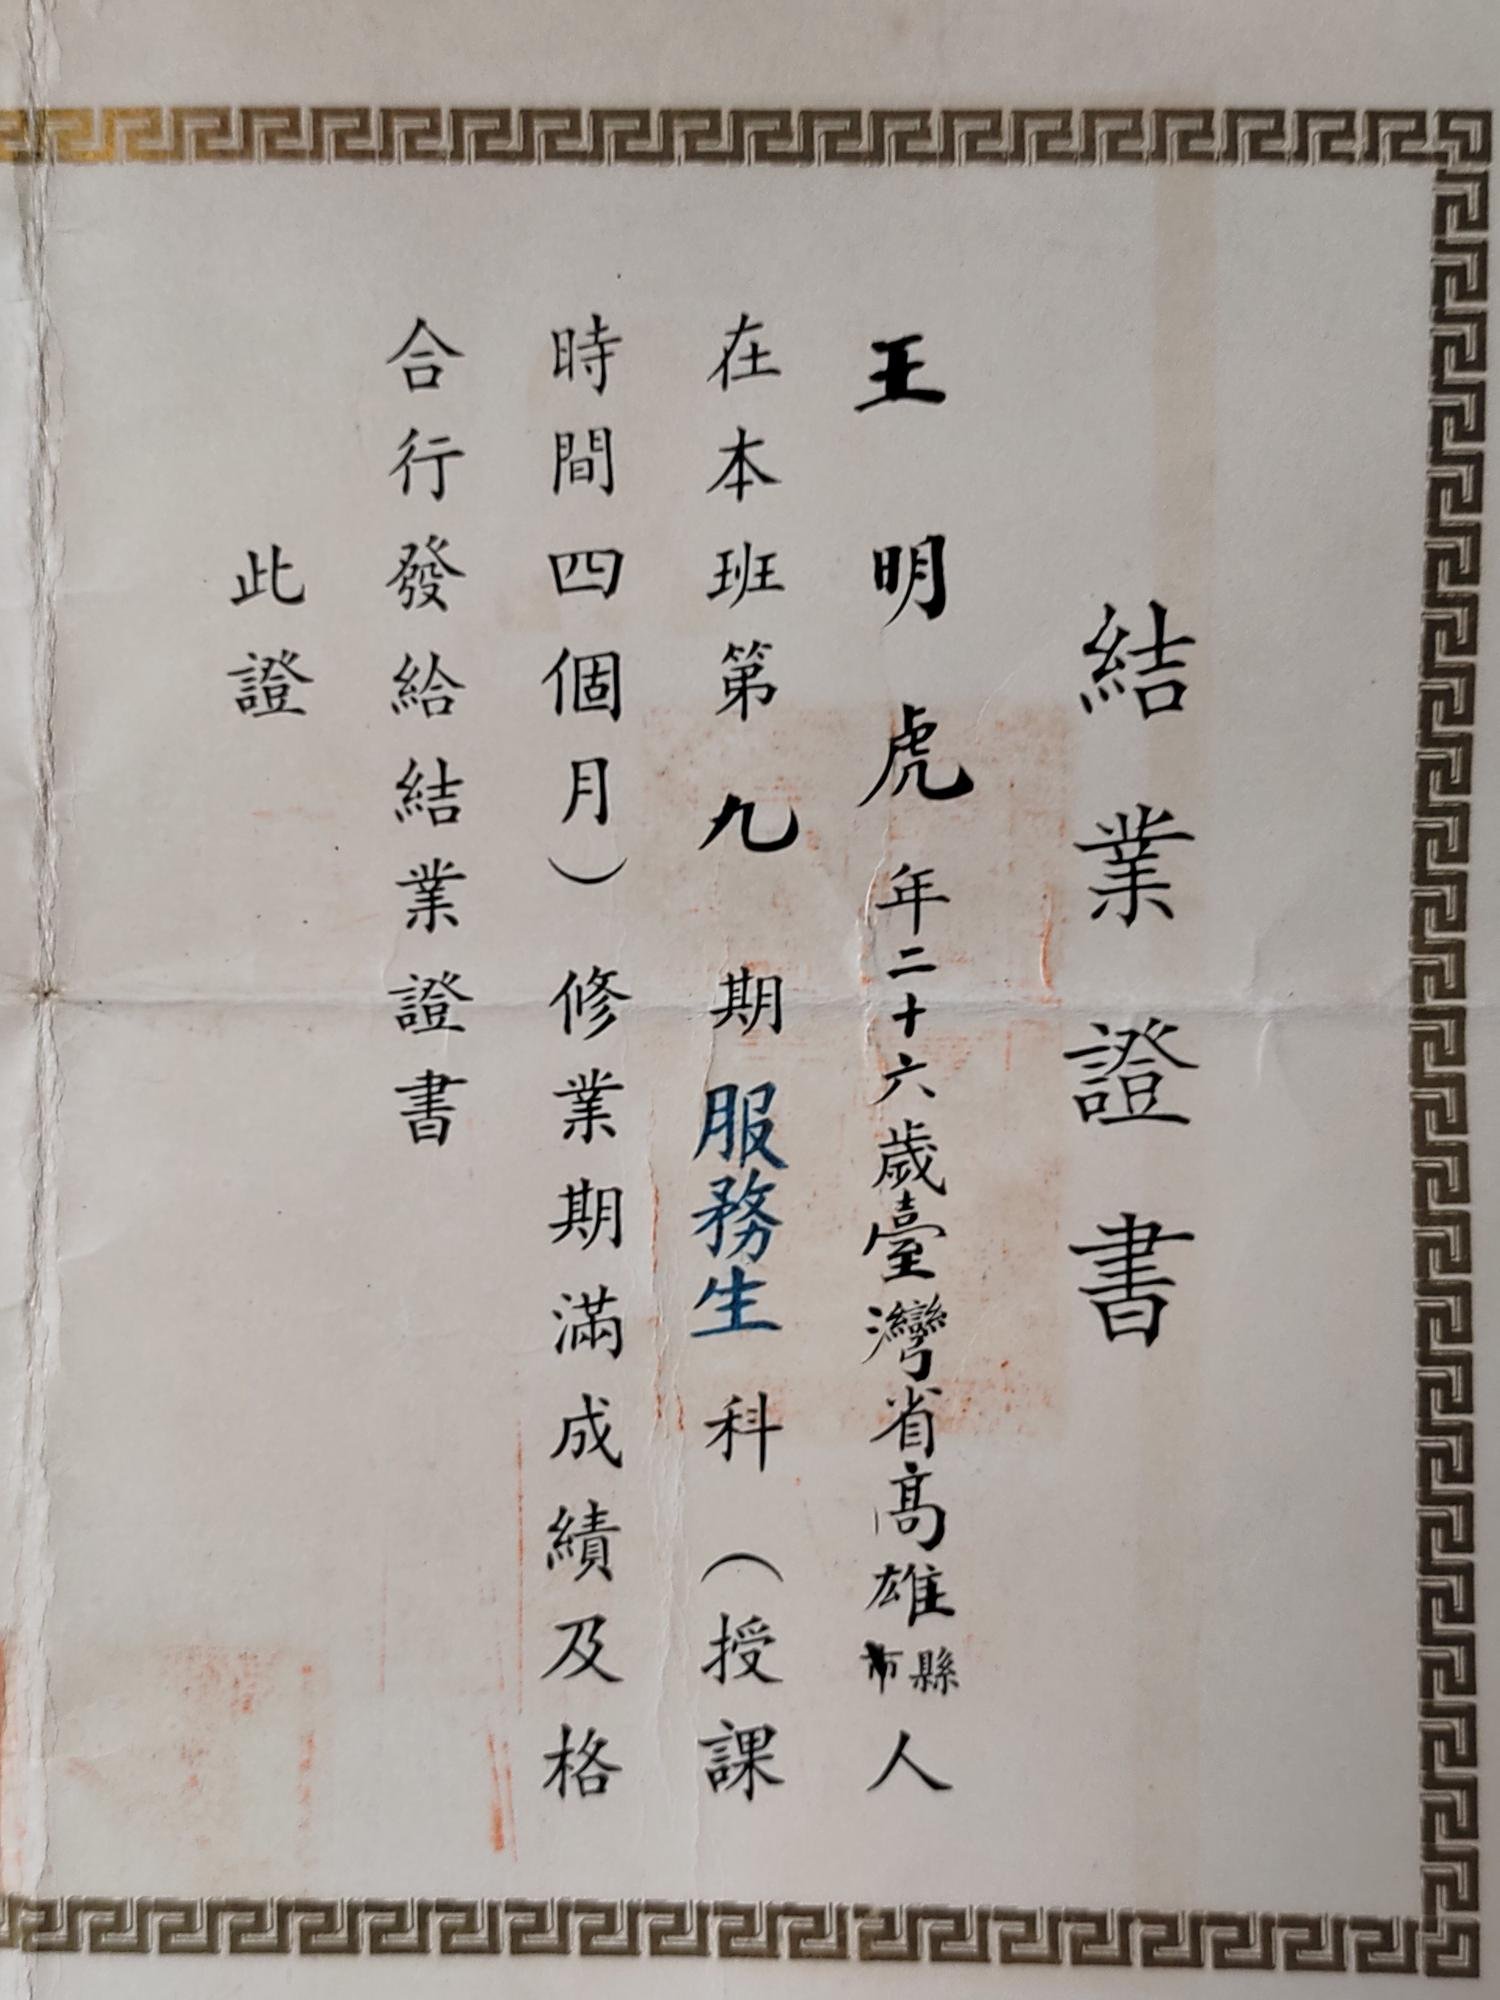 結業證書
王明虎年二十六歲臺灣省高雄縣市人
在本班第九期服務生科（授課
時間四個月）修業期滿成績及格
合行發給結業證書
此證